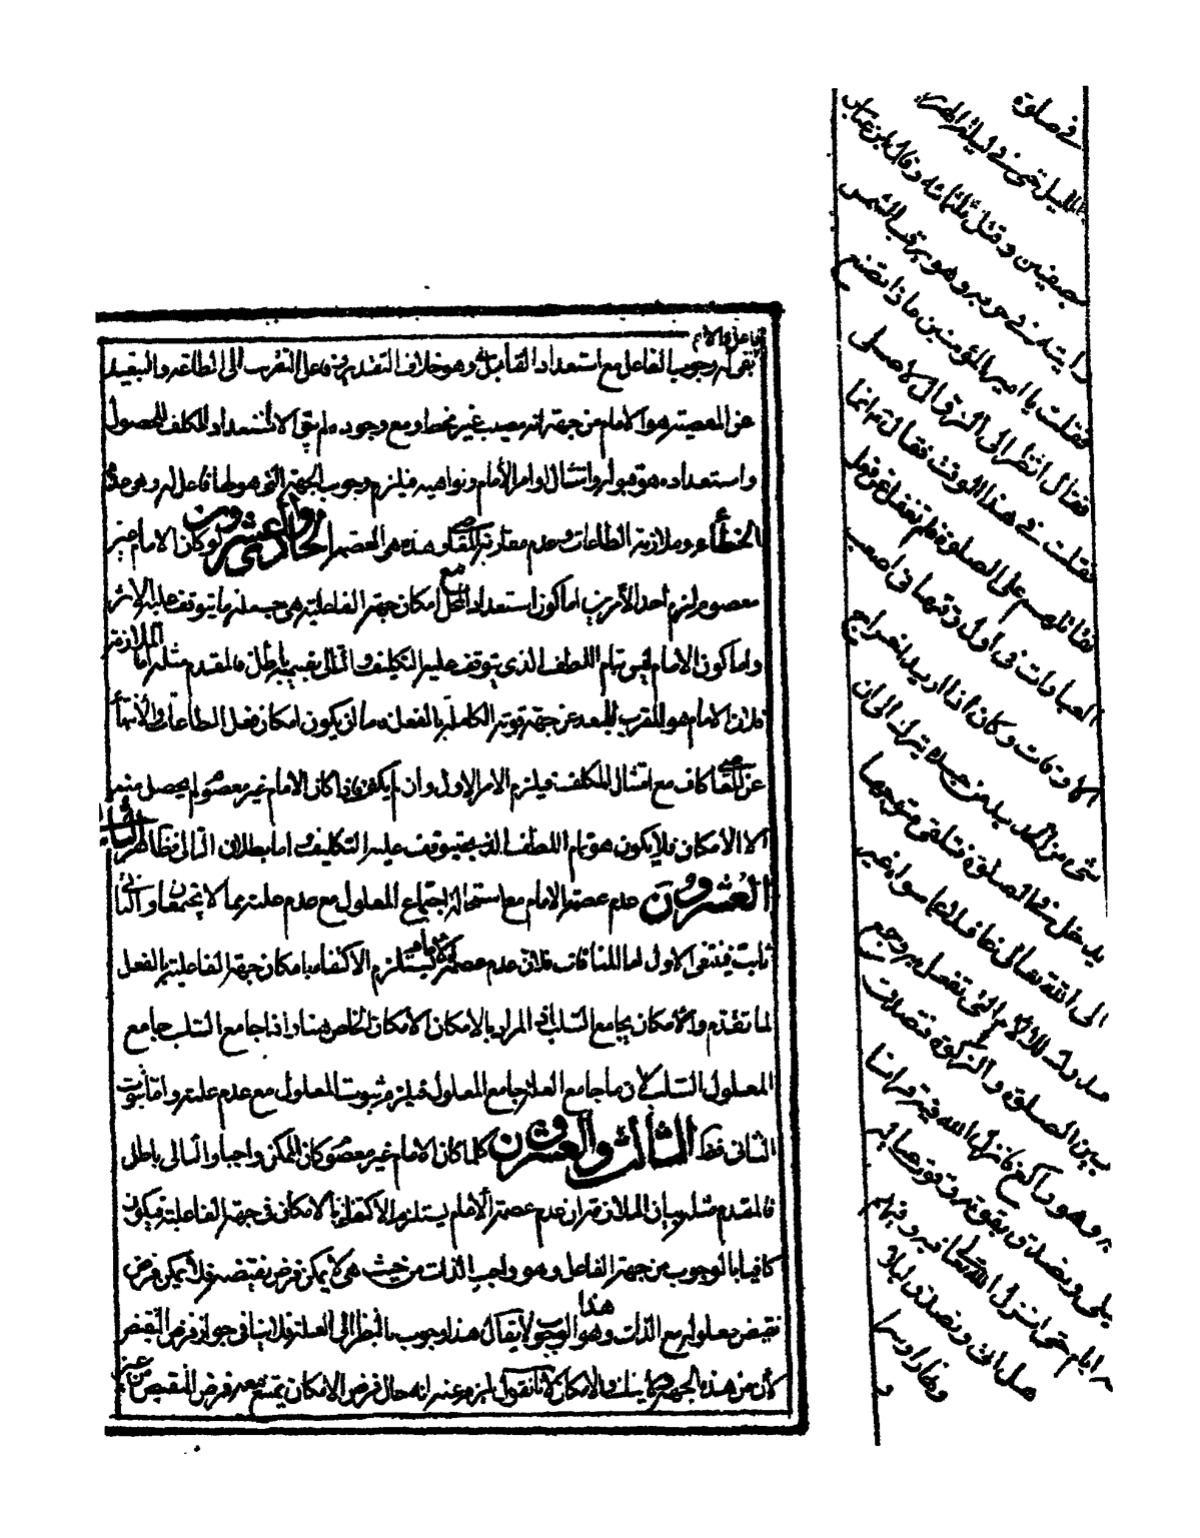 بقى له وجوب الفاعل مع استعداد القابل وهو خلاف التقدير فاعل التقريب الى الطاعة والتبعيد
عن المعصية هو الامام من جهة انه مصيب غير مخطاء ومع وجوده لم يبق الا استعداد المكلف للحصول
واستعداده هو قبوله وامتثال اوامر الأمام ونواهيه فيلزم وجوب الجهة التى هو لها فاعل له وهى عدم
الخطأ وملازمة الطاعات وعدم مقاربة المعاصى وهذه هى العصمة الحادى والعشرون لو كان الامام غير
معصوم لزم أحد الأمرين اما كون استعداد المحل مع امكان جهة الفاعلية هى جميع ما يتوقف عليه الاثر
واما كون الامام ليس تمام اللطف الذى يتوقف عليه التكليف والتالى بقسميه باطل فالمقدم مثله اما الملازمة
فلان الامام هو المقرب المبعد عن جهة قوته الكاملة بالفعل فاما ان يكون امكان فعل الطاعات والأمتناع
عن المعاصى كاف مع امتثال المكلف فيلزم الامر الاول وان لم يكن فاذا كان الامام غير معصوم لم يحصل منه
الا الامكان فلا يكون هو تمام اللطف الذى يتوقف عليه التكليف واما بطلان التالى فظاهر الثانى
والعشرون عدم عصمة الامام مع استحالة اجتماع المعلول مع عدم علته مما لا يجتمعان والثانى
ثابت فينتفى الاول اما التنافى فلان عدم عصمة الامام يستلزم الاكتفاء بامكان جهة الفاعلية بالفعل
لما تقدم والامكان يجامع السلب اذ المراد بالامكان الامكان الخاص هنا واذا جامع السلب جامع
المعلول السلب لان ما جامع العلة جامع المعلول فيلزم ثبوت المعلول مع عدم علته واما ثبوت
الثانى فظ الثالث والعشرون كلما كان الامام غير معصوم كان الممكن واجبا والتالى باطل
فالمقدم مثله بيان الملازمة ان عدم عصمة الأمام يستلزم الاكتفاء بالامكان فى جهة الفاعلية فيكون
كافيا بالوجوب من جهة الفاعل وهو واجب الذات من حيث هى لا يمكن فرض نقيضه فلا يمكن فرض
نقيض معلوله مع الذات وهو الوجوب لا يقال هذا وجوب بالنظر الى العلة فلا ينافى جواز فرض النقيض
لأن من هذه الجهة والامكان لانا نقول يلزم عنه انه حال فرض الامكان يمتنع معه فرض النقيض من غير
فى صلوة
الليل حتى فى ليلة الهرير
بصفين وقال ابن عباس
رايته فى حربه وهو يرقب الشمس
فقلت يا امير المؤمنين ماذا تصنع
فقال انظر الى الزوال لاصلى
فقلت فى هذا الوقت فقال نعم انما
نقاتلهم على الصلوة فلم نغفل عن فعل
العبادات فى اول وقتها فى اصعب
الاوقات وكان اذا اريد اخراج
شئ من الحديد من جسده يترك الى ان
يدخل فى الصلوة فيبقى متوجها
الى الله تعالى غافلا عما سواه غير
مدرك للآلام التى تفعل به وجمع
بين الصلوة والزكوة فتصدق
وهو راكع فانزل الله فيه قرآنا
يتلى وتصدق بقوته وقوت عياله
ايام حتى انزل الله فيه وفيهم
هل اتى وتصدق ليلا
ونهارا وسرا
و